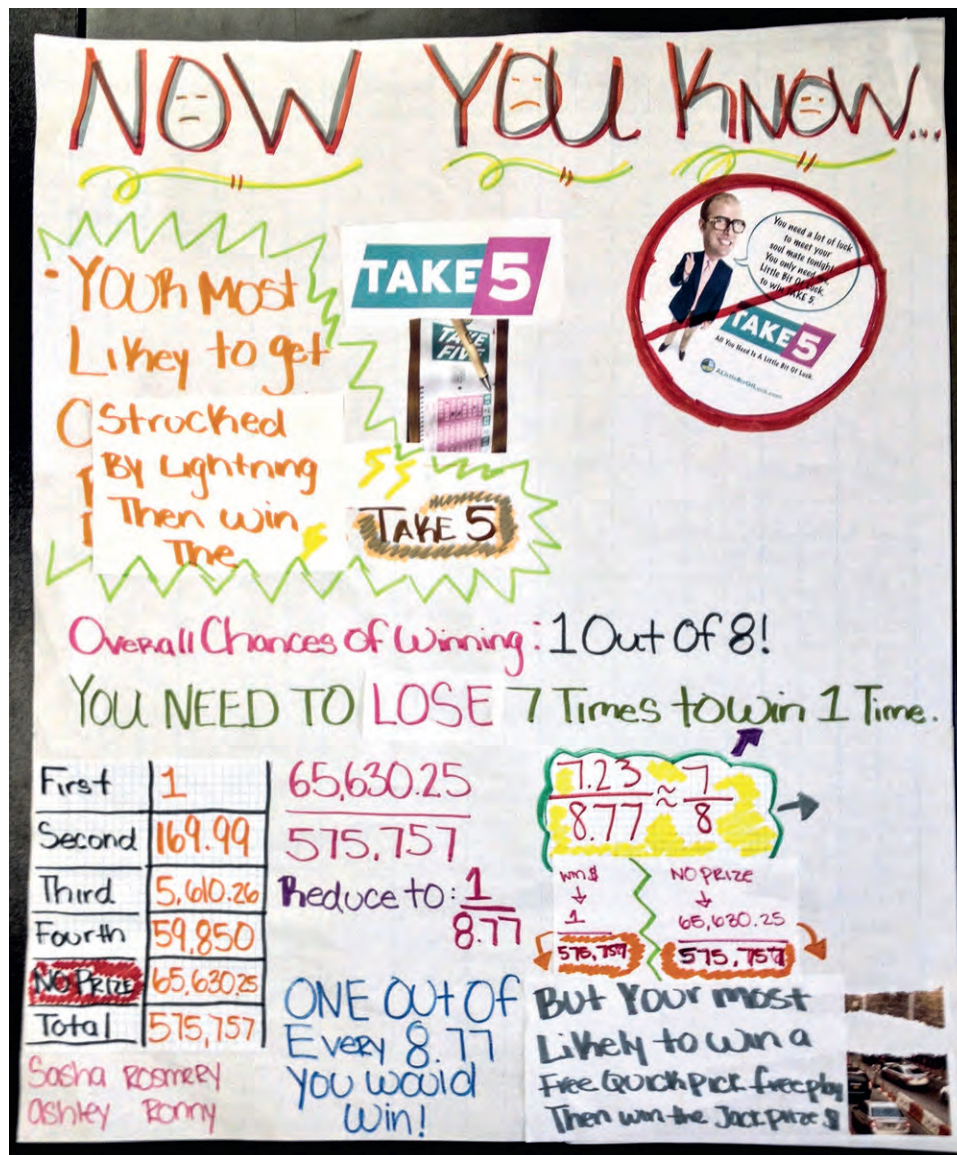 NOW YOU KNOW...
- YOUR MOST
Likey to get
Strucked
By Lightning
Then win
The
TAKE 5
TAKE 5
TAKE
FIVE
You need a lot of luck
to meet your
soul mate tonight.
You only need a
Little Bit Of Luck
to win TAKE 5.
TAKE 5
All You Need Is A Little Bit Of Luck.
ALittleBitOfLuck.com
Overall Chances of Winning: 1 Out Of 8!
YOU NEED TO LOSE 7 Times to win 1 Time.
First 1
Second 169.99
Third 5,610.26
Fourth 59,850
NO PRIZE 65,630.25
Total 575,757
Sasha Rosmery
Ashley Ronny
65,630.25
575,757
Reduce to: 1
8.77
ONE OUt OF
Every 8.77
YOU would
Win!
7.23 ≈ 7
8.77 8
win $
↓
1
575,757
NO PRIZE
↓
65,630.25
575,757
But Your most
Likely to win a
Free Quick Pick free play
Then win the Jack prize $